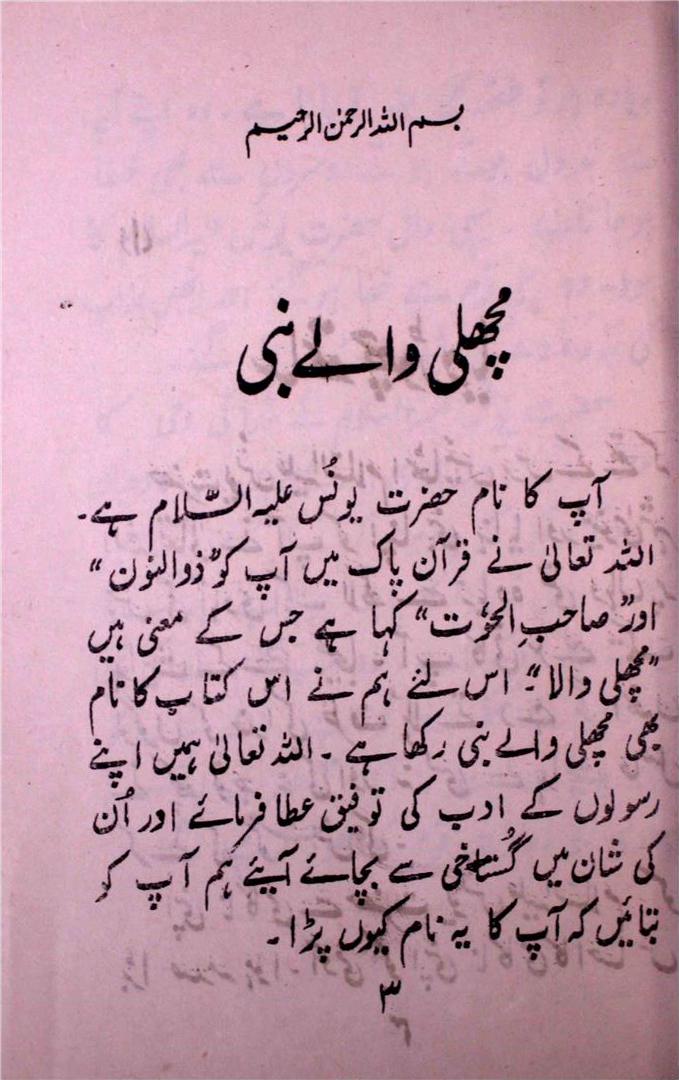 بسم اللہ الرحمٰن الرحیم
مچھلی والے نبی
آپ کا نام حضرت یونُس علیہ السّلام ہے۔
اللہ تعالیٰ نے قرآن پاک میں آپ کو ”ذوالنون“
اور ”صاحبِ الحوُت“ کہا ہے جس کے معنی ہیں
”مچھلی والا“۔ اس لئے ہم نے اس کتاب کا نام
بھی مچھلی والے نبی رکھا ہے۔ اللہ تعالیٰ ہمیں اپنے
رسولوں کے ادب کی توفیق عطا فرمائے اور اُن
کی شان میں گُستاخی سے بچائے آیئے ہم آپ کو
بتائیں کہ آپ کا یہ نام کیوں پڑا۔
۳